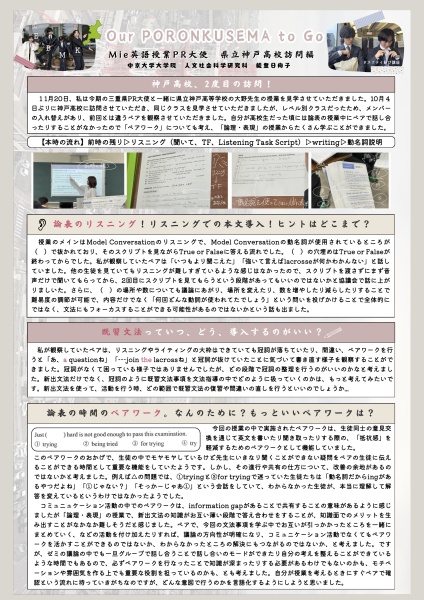 Our PORONKUSEMA to Go
Mie英語授業PR大使　県立神戸高校訪問編
中京大学大学院　人文社会科学研究科　能登日向子
神戸高校、2度目の訪問！
11月20日、私は今期の三重県PR大使と一緒に県立神戸高等学校の大野先生の授業を見学させていただきました。10月4
日ぶりに神戸高校に訪問させていただき、同じクラスを見学させていただきましたが、レベル別クラスだったため、メンバー
の入れ替えがあり、前回とは違うペアを観察させていただきました。自分が高校生だった頃には論表の授業中にペアで話し合
ったりすることがなかったので「ペアワーク」についても考え、「論理・表現」の授業からたくさん学ぶことができました。
【本時の流れ】前時の残り▷リスニング（聞いて、TF、Listening Task Script）▷writing▷動名詞説明
論表のリスニング！リスニングでの本文導入！ヒントはどこまで？
授業のメインはModel Conversationのリスニングで、Model Conversationの動名詞が使用されているところが
（　）で抜かれており、そのスクリプトを見ながらTrue or Falseに答える流れでした。（　）の穴埋めはTrue or Falseが
終わってからでした。私が観察していたペアは「いつもより聞こえた」「強いて言えばlacrosseが何かわかんない」と話し
ていました。他の生徒を見ていてもリスニングが難しすぎているような感じはなかったので、スクリプトを渡さずにまず音
声だけで聞いてもらってから、2回目にスクリプトを見てもらうという段階があってもいいのではないかと協議会で話に上が
りました。さらに、（　）の場所や数についても議論にあがり、場所を変えたり、数を増やしたり減らしたりすることで
難易度の調節が可能で、内容だけでなく「何回どんな動詞が使われてたでしょう」という問いを投げかけることで全体的に
ではなく、文法にもフォーカスすることができる可能性があるのではないかという話も出ました。
既習文法っていつ、どう、導入するのがいい？
私が観察していたペアは、リスニングやライティングの大枠はできていても冠詞が落ちていたり、間違い、ペアワークを行
うと「あ、a questionね」「…join the lacrossね」と冠詞が抜けていたことに気づいて書き直す様子を観察することがで
きました。冠詞がなくて困っている様子ではありませんでしたが、どの段階で冠詞の整理を行うのがいいのかなと考えまし
た。新出文法だけでなく、冠詞のように既習文法事項を文法指導の中でどのように扱っていくのかは、もっと考えてみたいで
す。新出文法を使って、活動を行う時、どの範囲で既習文法の復習や間違いの直しを行うといいのでしょうか。
論表の時間のペアワーク。なんのために？もっといいペアワークは？
Just (　　) hard is not good enough to pass this examination.
① trying　② being tried　③ for trying　④ try
今回の授業の中で実施されたペアワークは、生徒同士の意見交
換を通じて英文を書いたり聞き取ったりする際の、「抵抗感」を
軽減するためのペアワークとして機能していました。
このペアワークのおかげで、生徒の中でモヤモヤしているけど先生にいきなり聞くことができない疑問をペアの生徒に伝え
ることができる時間として重要な機能をしていたようです。しかし、その進行や共有の仕方について、改善の余地があるの
ではないかと考えました。例えば△の問題では、①tryingと③for tryingで迷っていた生徒たちは「動名詞だからingがあ
るやつだよね」「①じゃない？」「そっかーじゃあ①」という会話をしていて、わからなかった生徒が、本当に理解して解
答を変えているというわけではなかったようでした。
コミュニケーション活動の中でのペアワークは、information gapがあることで共有することの意味があるように感じ
ましたが「論理・表現」の授業で、新出文法の知識がお互い薄い段階で答え合わせをすることが、知識面でのメリットを生
み出すことがなかなか難しそうだと感じました。ペアで、今回の文法事項を学ぶ中でお互いが引っかかったところを一緒に
まとめていく、などの活動を付け加えたりすれば、議論の方向性が明確になり、コミュニケーション活動でなくてもペアワー
クを活かすことができるのではないか、わからなかったところの解決にもつながるのではないか、と考えました。です
が、ゼミの議論の中でも一旦グループで話し合うことで話し合いのモードができたり自分の考えを整えることができている
ような時間でもあるので、必ずペアワークを行なったことで知識が深まったりする必要があるわけでもないのかも、モチベ
ーションや雰囲気を作る上でも重要な役割を担っているのかも、とも考えました。自分が授業を考えるときにすぐペアで確
認という流れに持っていきがちなのですが、どんな意図で行うのかを言語化するようにしようと思いました。